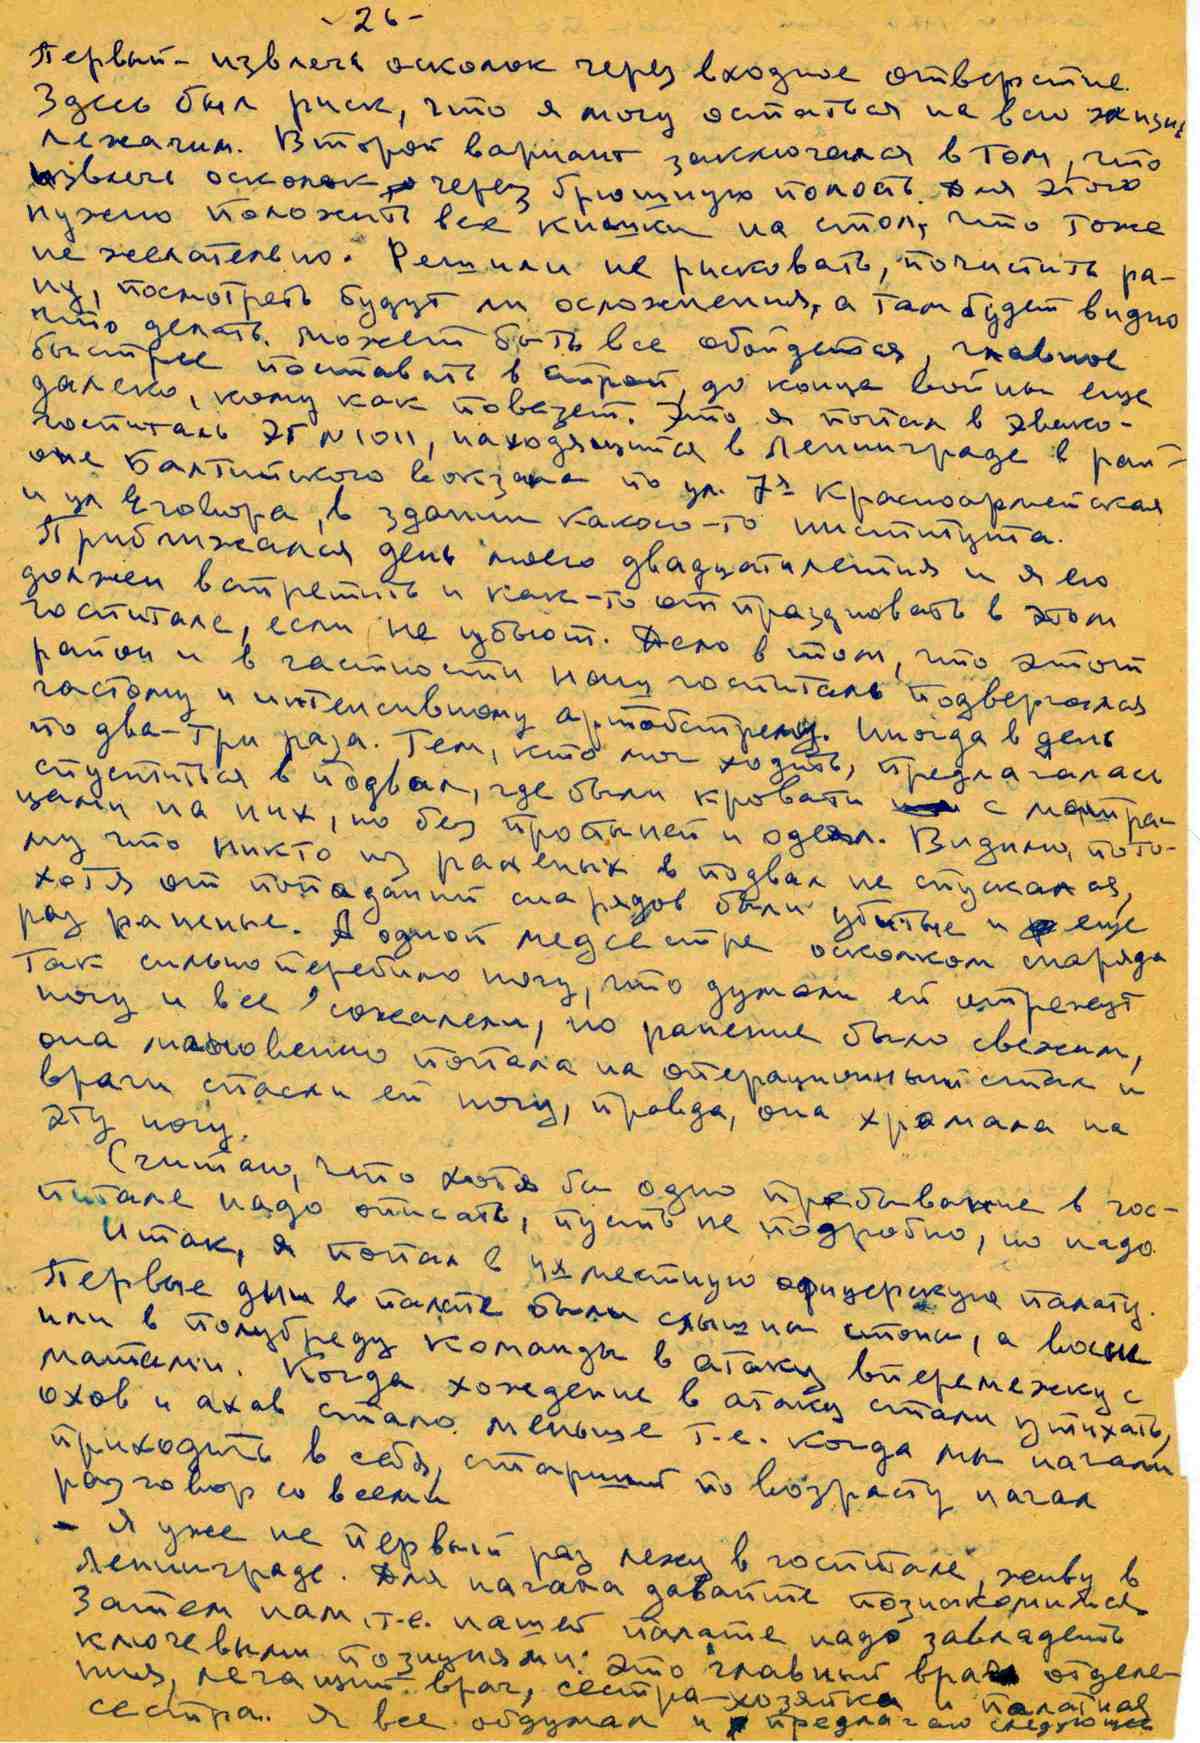 - 26 -
Первый - извлечь осколок через входное отверстие.
Здесь был риск, что я могу остаться на всю жизнь
лежачим. Второй вариант заключался в том, что
извлечь осколок через брюшную полость. Для этого
нужно положить все кишки на стол, что тоже
не желательно. Решили не рисковать, почистить ра-
ну, посмотреть будут ли осложнения, а там будет видно
что делать. Может быть все обойдется, главное
быстрее поставать в строй, до конца войны еще
далеко, кому как повезет. Это я попал в эвако-
госпиталь ЭГ №1011, находящийся в Ленинграде в рай-
оне Балтийского вокзала по ул. 7я Красноармейская
и ул Егорова, в здании какого-то института.
Приближался день моего двадцатилетия и я его
должен встретить и как-то отпраздновать в этом
госпитале, если не убьют. Дело в том, что этот
район и в частности наш госпиталь подвергался
частому и интенсивному артобстрелу. Иногда в день
по два-три раза. Тем, кто мог ходить, предлагалась
спуститься в подвал, где были кровати с матра-
цами на них, но без простыней и одеял. Видимо, пото-
му что никто из раненых в подвал не спускался,
хотя от попаданий снарядов были убитые и еще
раз раненые. А одной медсестре осколком снаряда
так сильно перебило ногу, что думали ей отрежут
ногу и все сожалели, но ранение было свежим,
она мгновенно попала на операционный стол и
врачи спасли ей ногу, правда, она хромала на
эту ногу.
Считаю, что хотя бы одно пребывание в гос-
питале надо описать, пусть не подробно, но надо.
Итак, я попал в 4х местную офицерскую палату.
Первые дни в палате были слышны стоны, а
или в полубреду команды в атаку вперемежку с
матами. Когда хождение в атаку стали утихать,
охов и ахов стало меньше т.е. когда мы начали
приходить в себя, старший по возрасту начал
разговор со всеми
- Я уже не первый раз лежу в госпитале, живу в
Ленинграде. Для начала давайте познакомимся.
Затем нам, т.е. нашей палате надо завладеть
ключевыми позициями: это главный врач отделе-
ния, лечащий врач, сестра-хозяйка и палатная
сестра. Я все обдумал и предлагаю следующее